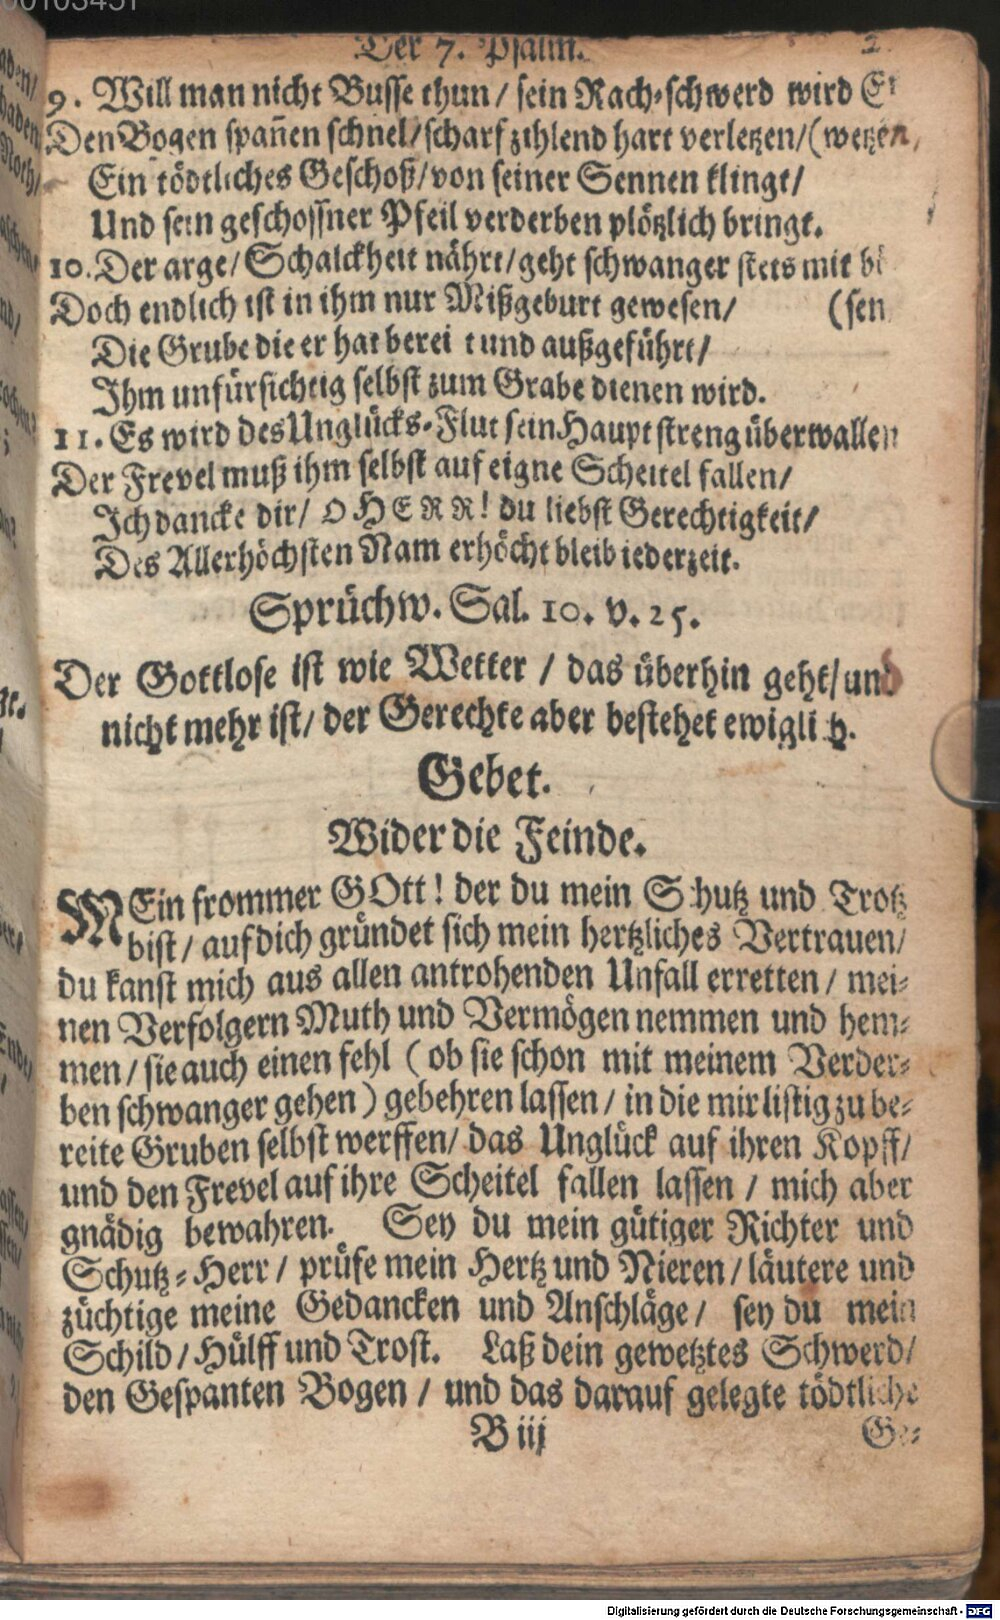 00103431
Der 7. Psalm. 2
9. Will man nicht Busse thun / sein Rach-schwerd wird Er
Den Bogen spañen schnel / scharf zihlend hart verletzen / (wetzen,
Ein tödtliches Geschoß / von seiner Sennen klingt /
Und sein geschossner Pfeil verderben plötzlich bringt.
10. Der arge / Schalckheit nährt / geht schwanger stets mit bö
Doch endlich ist in ihm nur Mißgeburt gewesen / (sen
Die Grube die er hat bereitt und außgeführt /
Ihm unfürsichtig selbst zum Grabe dienen wird.
11. Es wird des Unglücks-Flut sein Haupt streng überwallen
Der Frevel muß ihm selbst auf eigne Scheitel fallen /
Ich dancke dir / O HERR! du liebst Gerechtigkeit /
Des Allerhöchsten Nam erhöcht bleib iederzeit.
Sprüchw. Sal. 10. v. 25.
Der Gottlose ist wie Wetter / das überhin geht / und
nicht mehr ist / der Gerechte aber bestehet ewiglich.
Gebet.
Wider die Feinde.
MEin frommer GOtt! der du mein Schutz und Trotz
bist / auf dich gründet sich mein hertzliches Vertrauen /
du kanst mich aus allen antrohenden Unfall erretten / mei-
nen Verfolgern Muth und Vermögen nemmen und hem-
men / sie auch einen fehl ( ob sie schon mit meinem Verder-
ben schwanger gehen ) gebehren lassen / in die mir listig zu be-
reite Gruben selbst werffen / das Unglück auf ihren Kopff /
und den Frevel auf ihre Scheitel fallen lassen / mich aber
gnädig bewahren. Sey du mein gütiger Richter und
Schutz-Herr / prüfe mein Hertz und Nieren / läutere und
züchtige meine Gedancken und Anschläge / sey du mein
Schild / Hülff und Trost. Laß dein gewetztes Schwerd /
den Gespanten Bogen / und das darauf gelegte tödtliche
B iij Ge-
Digitalisierung gefördert durch die Deutsche Forschungsgemeinschaft - DFG